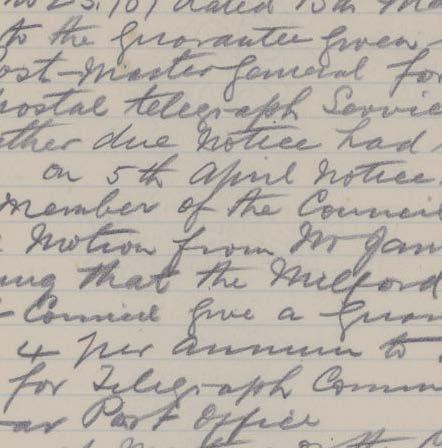 No 25.101 dated 15th Ma
to the guarantee given
Post-Master General for
postal telegraph Servi
ther due Notice had
on 5th April Notice
member of the Council
Motion from Mr Jam
ing that the Milford
Council give a Guar
4 per annum to
for Telegraph Commu
ar Post Office